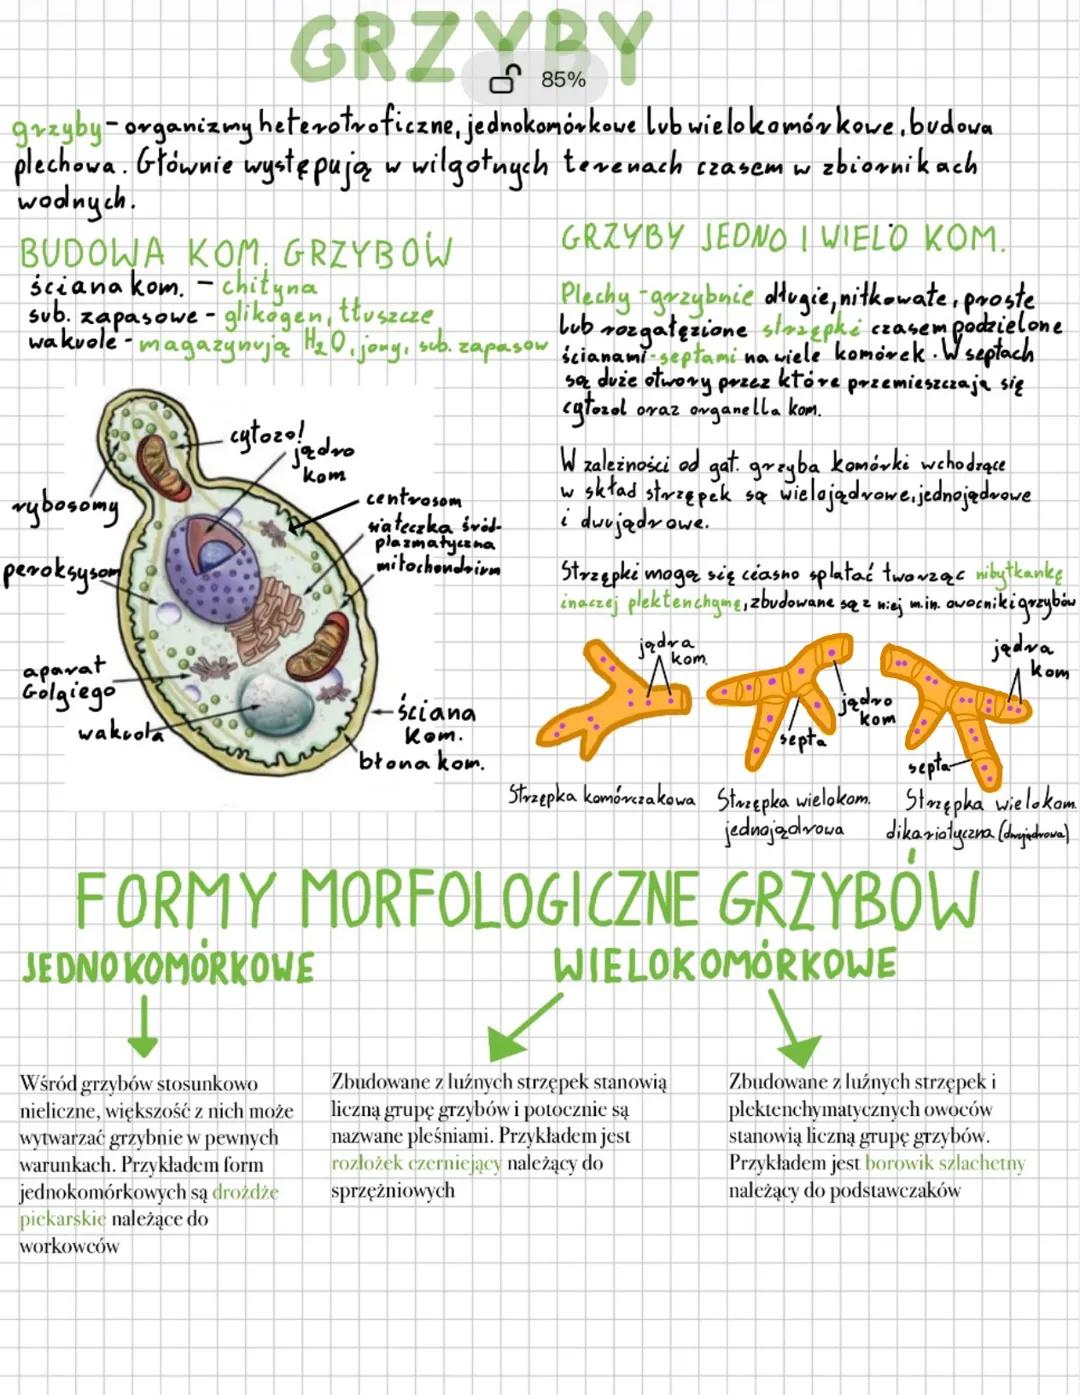 GRZYBY
85%
grzyby - organizmy heterotroficzne, jednokomórkowe lub wielokomórkowe, budowa
plechowa. Głównie występują w wilgotnych terenach czasem w zbiornikach
wodnych.
BUDOWA KOM. GRZYBÓW
ściana kom. - chityna
sub. zapasowe - glikogen, tłuszcze
wakuole - magazynują H₂O, jony, sub. zapasow
cytozol
jądro
kom
centrosom
siateczka śród-
plazmatyczna
mitochondrium
rybosomy
peroksysom
aparat
Golgiego
wakuola
ściana
kom.
błona kom.
GRZYBY JEDNO I WIELO KOM.
Plechy - grzybnie długie, nitkowate, proste
lub rozgałęzione strzępki czasem podzielone
ścianami - septami na wiele komórek. W septach
są duże otwory przez które przemieszczają się
cytozol oraz organella kom.
W zależności od gat. grzyba komórki wchodzące
w skład strzępek są wielojądrowe, jednojądrowe
i dwujądrowe.
Strzępki mogą się ciasno splatać tworząc nibytkankę
inaczej plektenchymę, zbudowane są z niej m.in. owocniki grzybów
jądra
kom.
jądro
kom
septa
jądra
kom
septa
Strzępka komórczakowa
Strzępka wielokom.
jednojądrowa
Strzępka wielokom.
dikariotyczna (dwujądrowa)
FORMY MORFOLOGICZNE GRZYBÓW
JEDNOKOMÓRKOWE
WIELOKOMÓRKOWE
Wśród grzybów stosunkowo
nieliczne, większość z nich może
wytwarzać grzybnie w pewnych
warunkach. Przykładem form
jednokomórkowych są drożdże
piekarskie należące do
workowców
Zbudowane z luźnych strzępek stanowią
liczną grupę grzybów i potocznie są
nazwane pleśniami. Przykładem jest
rozłożek czerniejący należący do
sprzężniowych
Zbudowane z luźnych strzępek i
plektenchymatycznych owoców
stanowią liczną grupę grzybów.
Przykładem jest borowik szlachetny
należący do podstawczaków